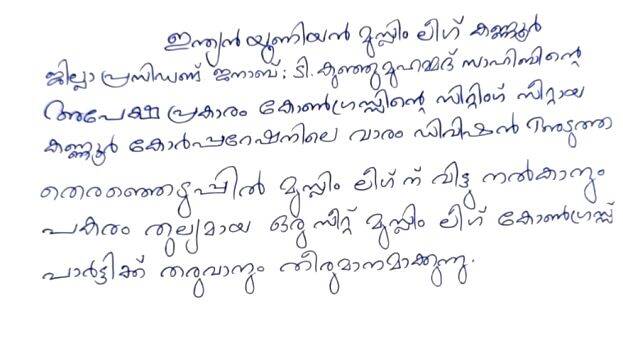 ഇന്ത്യൻ യൂണിയൻ മുസ്ലിം ലീഗ് കണ്ണൂർ
ജില്ലാ പ്രസിഡണ്ട് ജനാബ്: ടി. കുഞ്ഞുമുഹമ്മദ് സാഹിബിന്റെ
അപേക്ഷ പ്രകാരം കോൺഗ്രസ്സിന്റെ സിറ്റിംഗ് സീറ്റായ
കണ്ണൂർ കോർപ്പറേഷനിലെ വാരം ഡിവിഷൻ അടുത്ത
തെരഞ്ഞെടുപ്പിൽ മുസ്ലിം ലീഗ് ന് വിട്ടു നൽകാനും
പകരം തുല്യമായ ഒരു സീറ്റ് മുസ്ലിം ലീഗ് കോൺഗ്രസ്സ്
പാർട്ടിക്ക് തരുവാനും തീരുമാനമാക്കുന്നു.